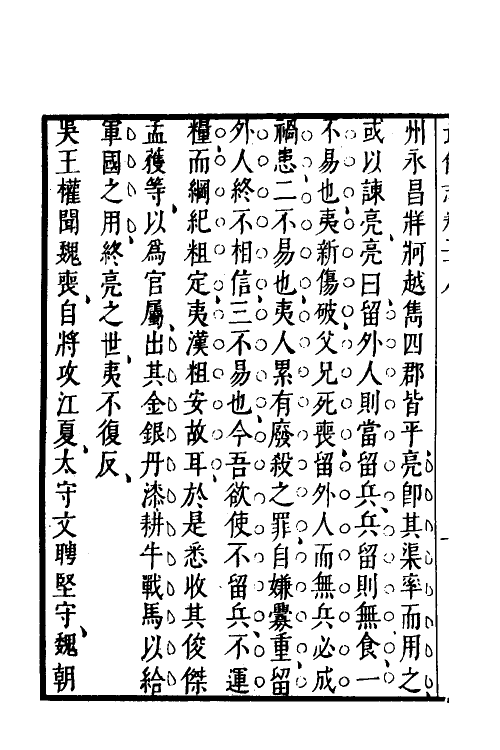 州永昌牂牁越雋四郡皆平亮卽其渠率而用之
或以諫亮亮曰留外人則當留兵兵留則無食一
不易也夷新傷破父兄死喪留外人而無兵必成
禍患二不易也夷人累有廢殺之罪自嫌釁重留
外人終不相信三不易也今吾欲使不留兵不運
糧而綱紀粗定夷漢粗安故耳於是悉收其俊傑
孟獲等以爲官屬出其金銀丹漆耕牛戰馬以給
軍國之用終亮之世夷不復反
吳王權聞魏喪自將攻江夏太守文聘堅守魏朝